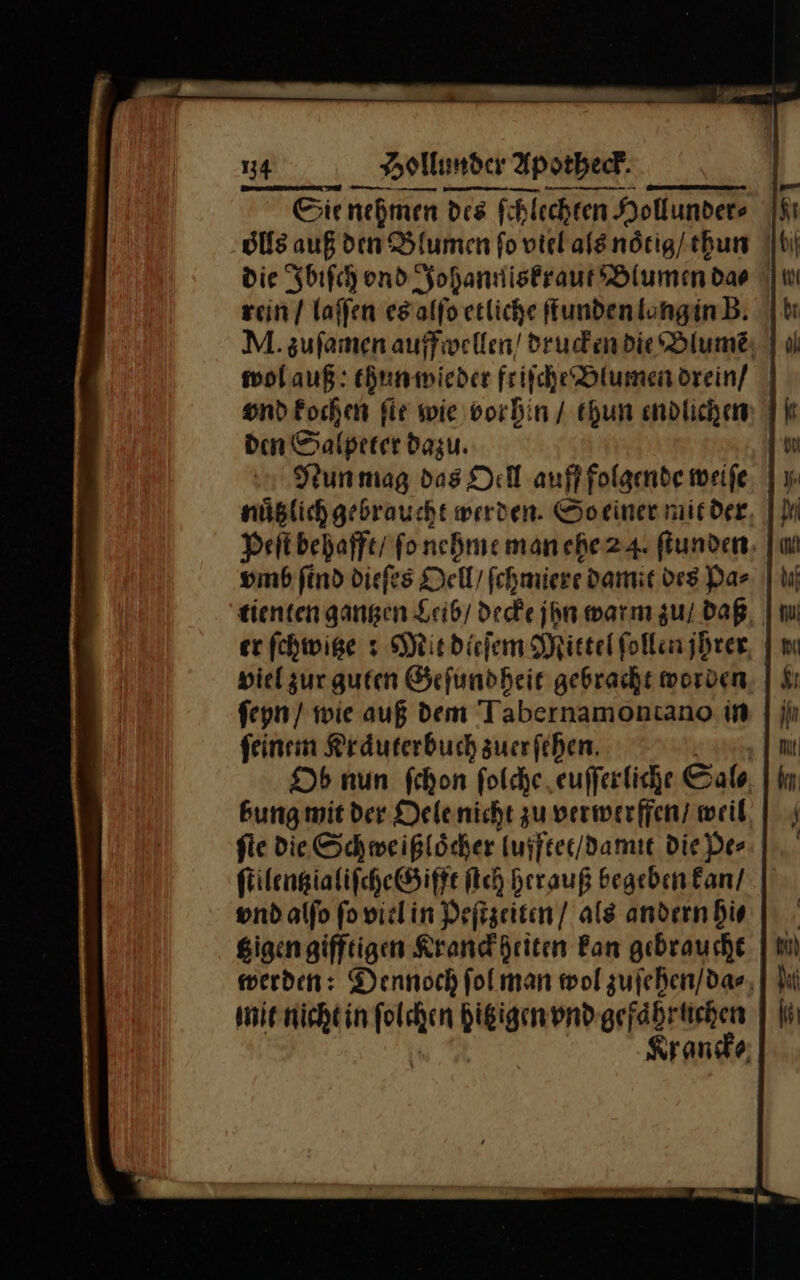 134 Hollunder Apotheck.
Sie nehmen des ſchlechten Hollunder⸗
oͤlls auß den Blumen ſo viel als noͤtig/ thun
die Jbiſch vnd Johanniskraut Blumen da⸗
rein / laſſen es alſo etliche ſtunden lang in B.
M. zuſamen auffwellen/ drucken die Blumẽ
wol auß: thun wieder friſche Blumen drein/
vnd kochen ſie wie vorhin / thun endlichen
den Salpeter dazu.
Nun mag das Oell auff folgende weiſe
nuͤtzlich gebraucht werden. So einer mit der
Peſt behafft/ ſo nehme man ehe 24. ſtunden
vmb ſind dieſes Oell/ ſchmiere damit des Pa⸗
tienten gantzen Leib/ decke jhn warm zu/ daß
er ſchwitze : Mit dieſem Mittel ſollen jhrer
viel zur guten Geſundheit gebracht worden
ſeyn / wie auß dem Tabernamontano in
ſeinem Kraͤuterbuch zuerſehen.
Ob nun ſchon ſolche euſſerliche Sal⸗
bung mit der Oele nicht zu verwerffen/ weil
ſie die Schweißloͤcher lufftet/damit die Pe⸗
ſtilentzialiſche Gifft ſich herauß begeben kan/
vnd alſo ſo viel in Peſtzeiten / als andern hi⸗
tzigen gifftigen Kranckheiten kan gebraucht
werden: Dennoch ſol man wol zuſehen/da⸗
mit nicht in ſolchen hitzigen vnd gefaͤhrlichen
Kranck⸗